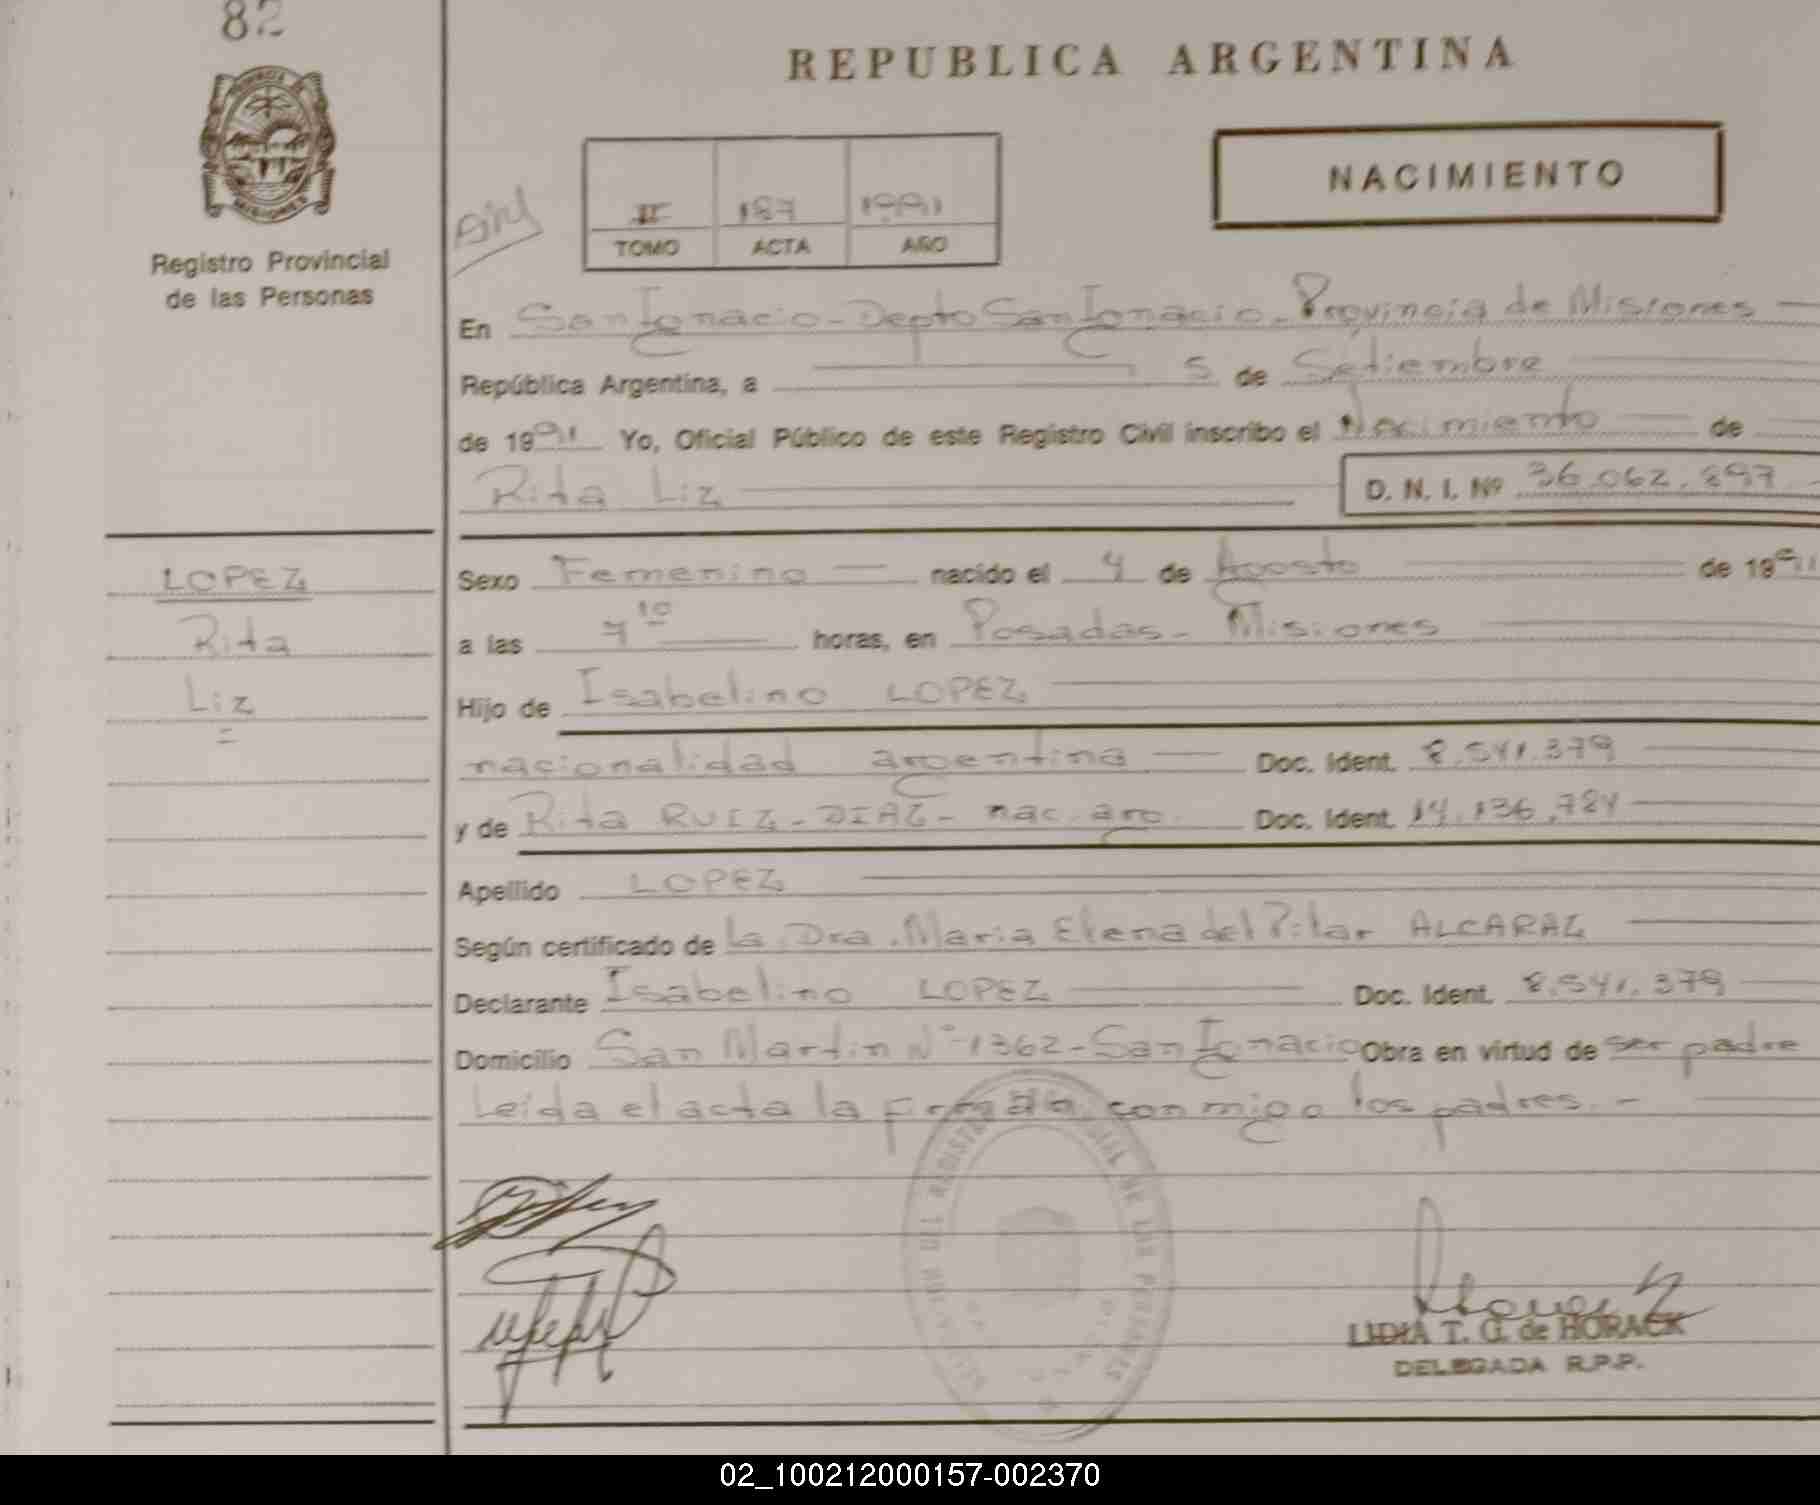 82
REPUBLICA ARGENTINA
NACIMIENTO
II 187 1991
TOMO ACTA AÑO
MISIONES
Registro Provincial
de las Personas
En San Ignacio - Depto San Ignacio - Provincia de Misiones
República Argentina, a 5 de Setiembre
de 1991 Yo, Oficial Público de este Registro Civil inscribo el Nacimiento de
Rita Liz D. N. I. Nº 36.062.897
LOPEZ
Rita
Liz
Sexo Femenino nacido el 4 de Agosto de 1991
a las 7 10 horas, en Posadas - Misiones
Hijo de Isabelino LOPEZ
nacionalidad argentina Doc. Ident. 8.541.379
y de Rita RUIZ - DIAZ - nac. arg. Doc. Ident. 14.136.784
Apellido LOPEZ
Según certificado de la Dra. Maria Elena del Pilar ALCARAZ
Declarante Isabelino LOPEZ Doc. Ident. 8.541.379
Domicilio San Martin Nº 1362 - San Ignacio Obra en virtud de ser padre
Leida el acta la firman conmigo los padres. -
LIDIA T. G. de HORACK
DELEGADA R.P.P.
02_100212000157-002370